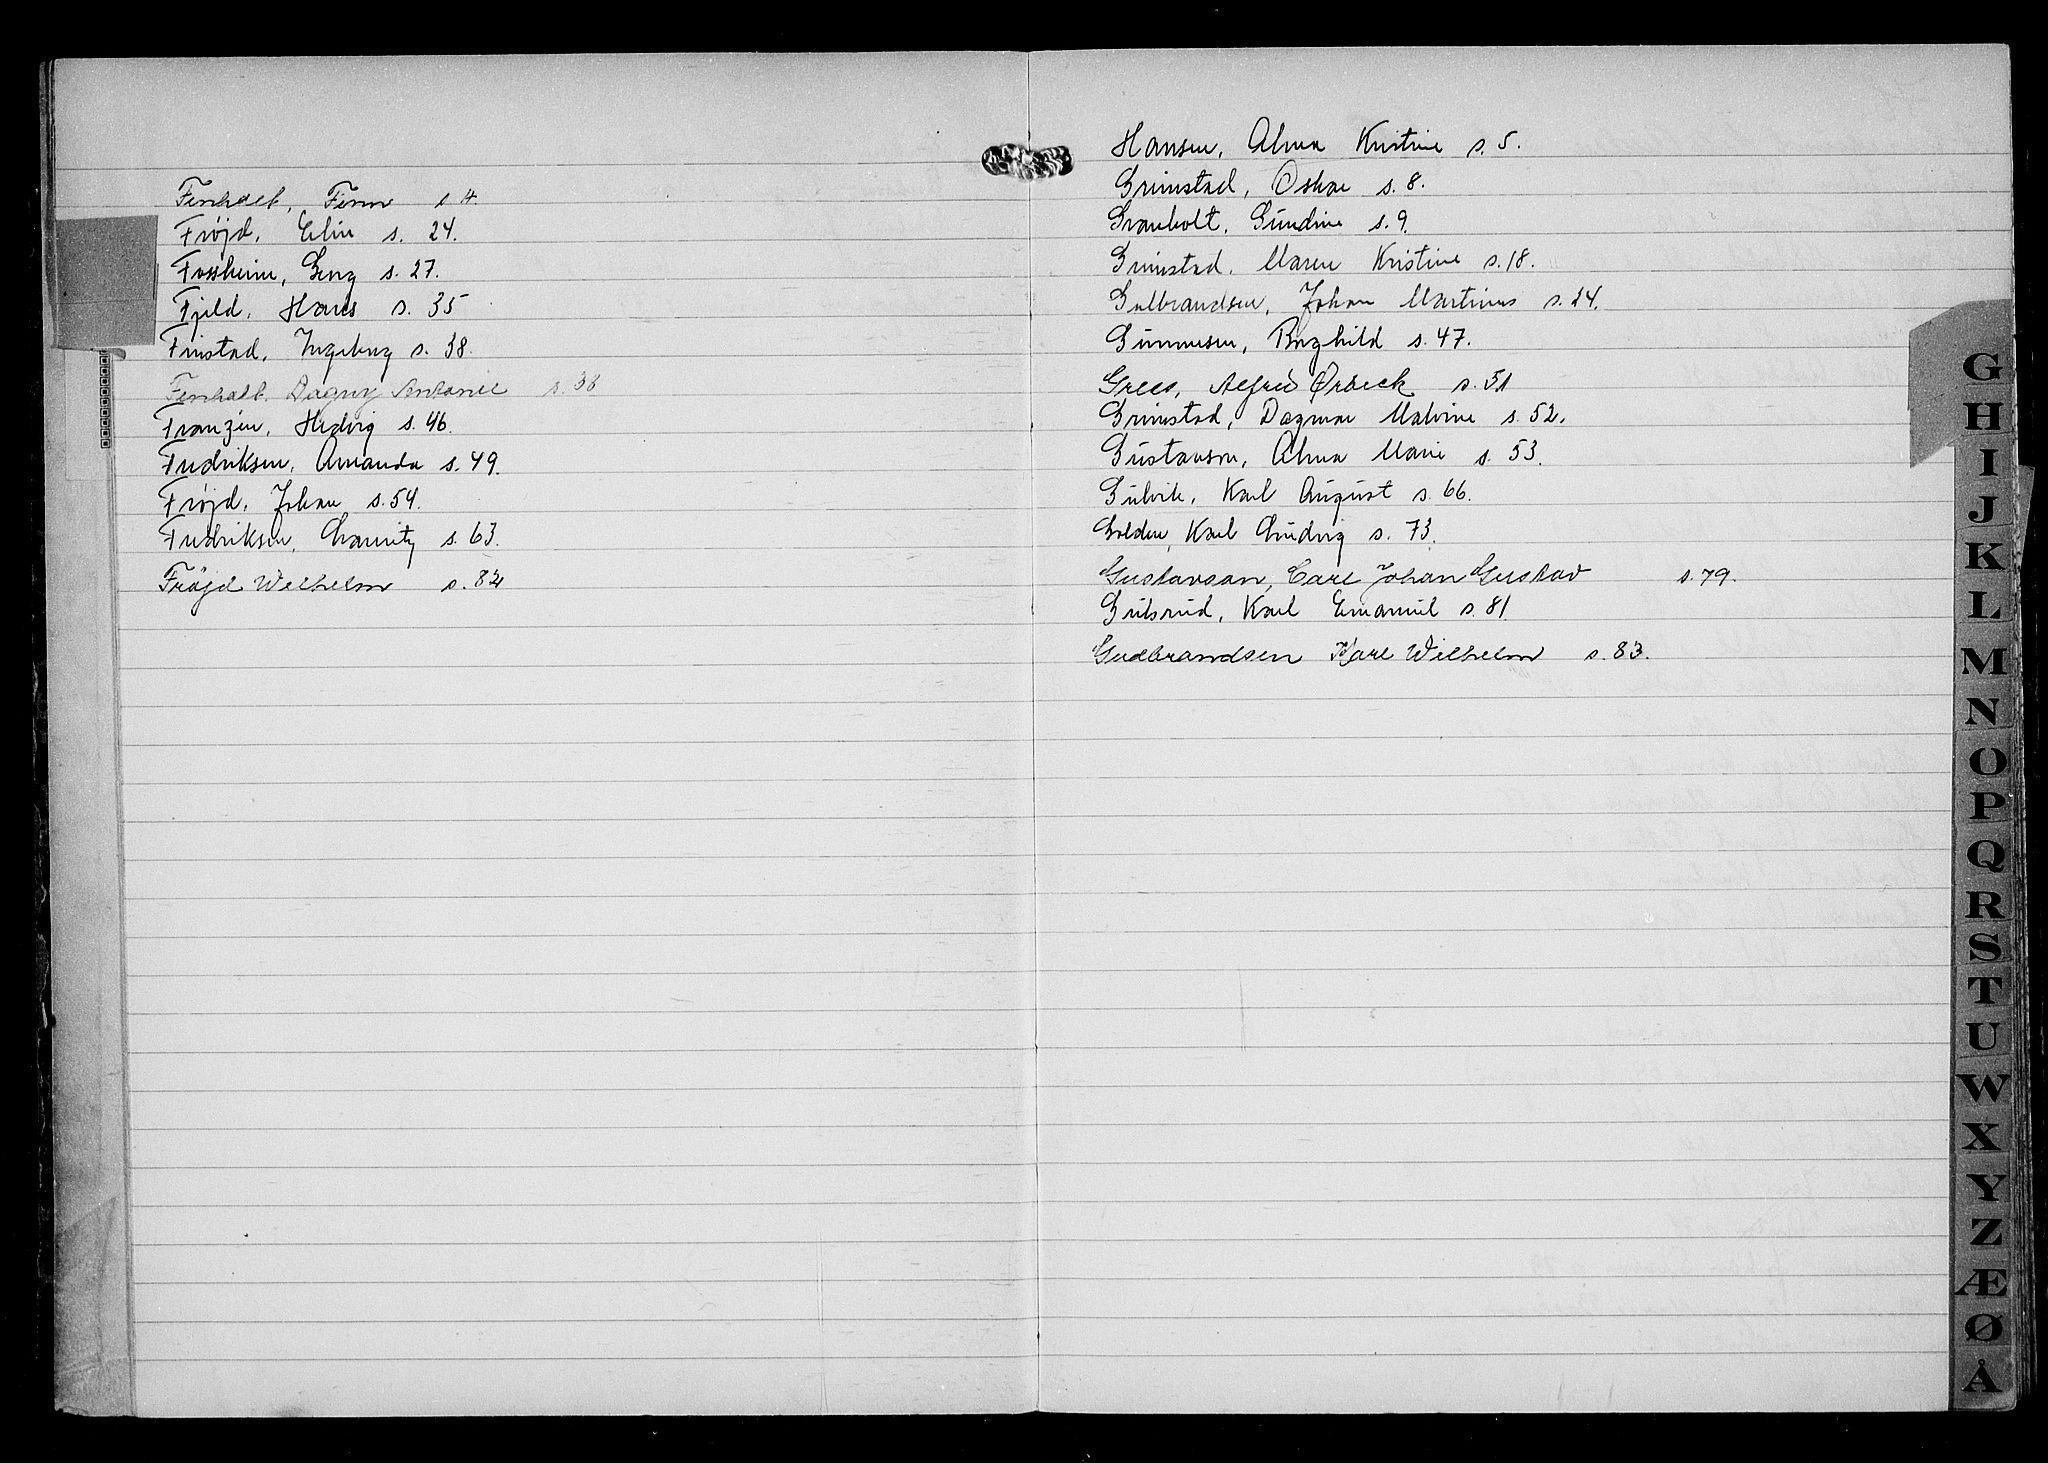 Finholt, Finn s 4
Frøjd, Elin s. 24.
Fossheim, Georg s. 27.
Fjeld, Hans s. 35
Finstad, Ingeborg s. 38.
Finholt, Dagny Antonie s. 38
Franzén, Hedvig s. 46.
Fredriksen, Amanda s. 49.
Frøjd, Johan s. 54.
Fredriksen, s. 63.
Fröjd Wilhelm s. 82
Hansen, Alma Kristine s. 5.
Grimstad, Oskar s. 8.
Granholt, Gundine s. 9.
Grimstad, Maren Kristine s. 18.
Gulbrandsen, Johan Martinus s. 24.
Gunnesen, Borghild s. 47.
Alfred Ørbeck s. 51
Grimstad, Dagmar Malvine s. 52.
Gustavson, Alma Marie s. 53.
Gulvik, Karl August s. 66.
Golden, Karl Ludvig s. 73.
Gustavson, Carl Johan Gustav s. 79.
Gulsrud, Karl Emanuel s. 81
Gudbrandsen Karl Wilhelm s. 83.
G
H
I
J
K
L
M
N
O
P
Q
R
S
T
U
W
X
Y
Z
Æ
Ø
Å